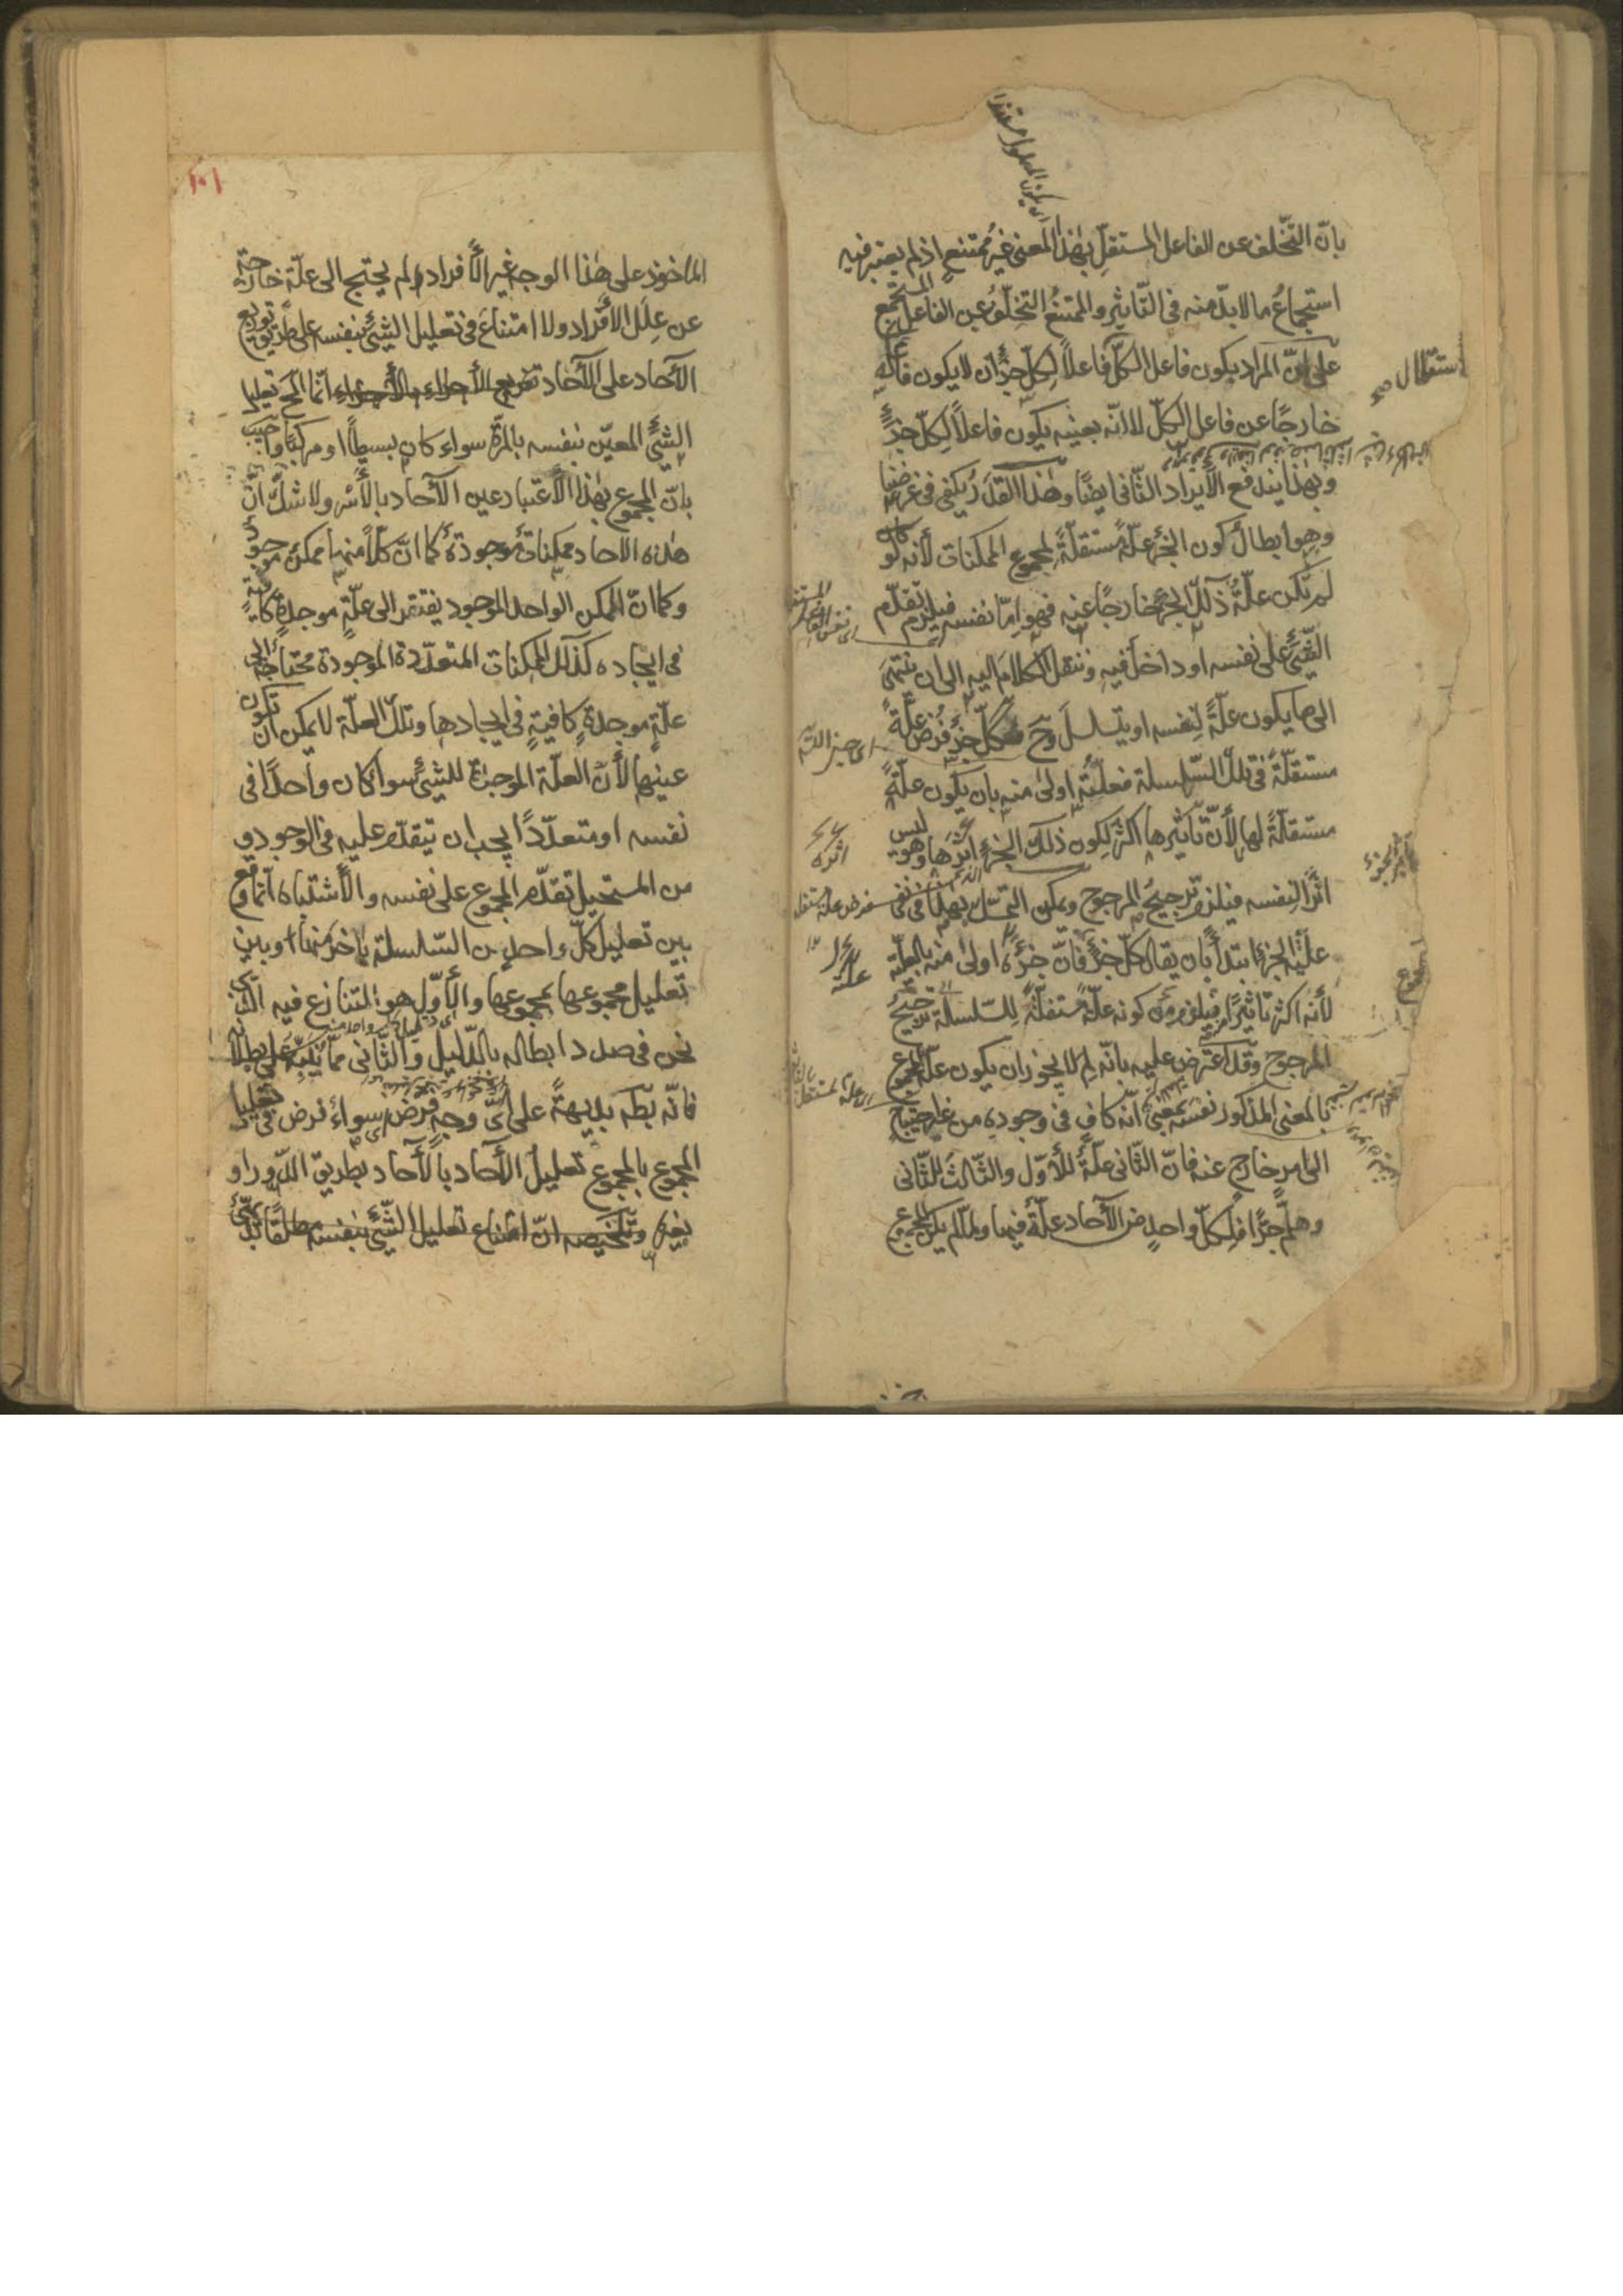 بانّ التّخلف عن الفاعل المستقلّ بهٰذا المعنى غيرُ ممتنعٍ اذ لم يعتبر فيه
استجماعُ ما لا بدّ منه فى التّاثير والممتنعُ التخلّفُ عن الفاعل المستجمع
على انّ المراد بكون فاعل الكلّ فاعلاً لكلّ جزءٍ ان لا يكون فاعله
خارجًا عن فاعل الكلّ لا انّه بعينه يكون فاعلاً لكلّ جزءٍ
وبهٰذا يندفع الأيراد الثّانى ايضًا وهٰذا القدر يكفى فى غرضنا
وهو ابطال كون الجزء علّة مستقلّةً لمجموع الممكنات لأنه لو كان
لم تكن علّةُ ذلك الجزء خارجًا عنه فهو امّا نفسه فيلزم تقدّم
الشّئ على نفسه او داخلٌ فيه وننقل الكلام اليه الى ان ينتهى
الى ما يكون علّةً لنفسه او يتسلسل وح فكلّ جزءٍ فُرض علّةً
مستقلّةً فى تلك السّلسلة فعلّتُه اولى منه بان يكون علّةً
مستقلّةً لها لأنّ تأثيرها اكثر لكون ذلك الجزء اثرَها وهو ليس
اثرًا لنفسه فيلزم ترجيحُ المرجوح ويمكن التمسّك بهذا فى نفى
علّيّة الجزء ابتداءً بان يقال كلّ جزءٍ فانّ جزءَه اولى منه بالعلّية
لأنه اكثر تأثيرًا فيلزم من كونه علّةً مستقلّةً للسّلسلة ترجيحُ
المرجوح وقد اعترض عليه بانّه لِم لا يجوز ان يكون علّة المجموع
بالمعنى المذكور نفسَه بمعنى انّه كافٍ فى وجوده من غير احتياج
الى امرٍ خارج عنه فانّ الثّانى علّةٌ للأوّل والثّالث للثّانى
وهلمّ جرًّا فلكلّ واحدٍ من الآحاد علّةٌ فيها ولمّا لم يكن المجموع
استقلال صح
اثره
علّته
١٠١
المأخوذ على هٰذا الوجه غير الأفراد ولم يحتج الى علّة خارجة
عن علل الأفراد ولا امتناعَ فى تعليل الشّئ بنفسه على طريق توزيع
الآحاد على الآحاد انّما المح تعليل
الشّئ المعيّن بنفسه بالمرّة سواء كان بسيطًا او مركّبًا واجيب
بانّ المجموع بهٰذا الأعتبار عين الآحاد بالأسْر ولا شكّ انّ
هذه الآحاد ممكنات موجودة كما انّ كلّاً منها ممكن موجود
وكما انّ الممكن الواحد الموجود يفتقر الى علّةٍ موجدةٍ كافيةٍ
فى ايجاده كذلك الممكنات المتعدّدة الموجودة محتاجة الى
علّةٍ موجدةٍ كافيةٍ فى ايجادها وتلك العلّة لا يمكن ان تكون
عينها لأنّ العلّة الموجدة للشّئ سواء كان واحدًا فى
نفسه او متعدّدًا يجب ان يتقدّم عليه فى الوجود و
من المستحيل تقدّم المجموع على نفسه والأشتباه انّما وقع
بين تعليل كلّ واحدٍ من السّلسلة بآخرَ منها وبين
تعليل مجموعها بمجموعها والأوّل هو المتنازع فيه الّذى
نحن فى صدد ابطاله بالدّليل والثّانى ممّا يُنبّه على بطلانه
فانّه بطه بديهةً على اىّ وجهٍ فُرض سواءٌ فرض فى تعليل
المجموع بالمجموع تعليلُ الآحاد بالآحاد بطريق الدّور او
بغيره وتلخيصه انّ امتناع تعليل الشّئ بنفسه مطلقًا بديهىّ